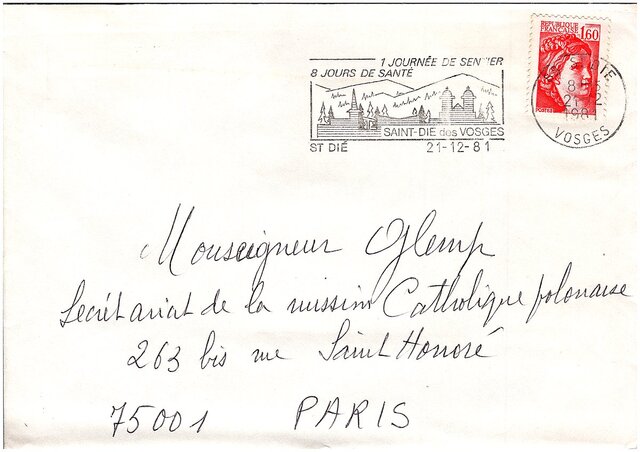 1 JOURNÉE DE SENTIER
8 JOURS DE SANTÉ
SAINT-DIÉ des VOSGES
ST DIÉ 21-12-81
REPUBLIQUE
FRANÇAISE
1,60
DIE
21-12
1981
VOSGES
Monseigneur Glemp
Secrétariat de la mission Catholique polonaise
263 bis rue Saint Honoré
75001 PARIS